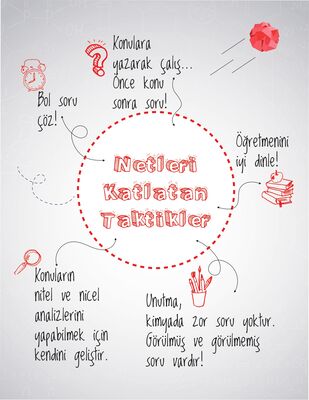 Konulara
yazarak çalış...
Önce konu
sonra soru!
Bol soru
çöz!
Öğretmenini
iyi dinle!
Netleri
Katlatan
Taktikler
Konuların
nitel ve nicel
analizlerini
yapabilmek için
kendini geliştir.
Unutma,
kimyada zor soru yoktur.
Görülmüş ve görülmemiş
soru vardır!